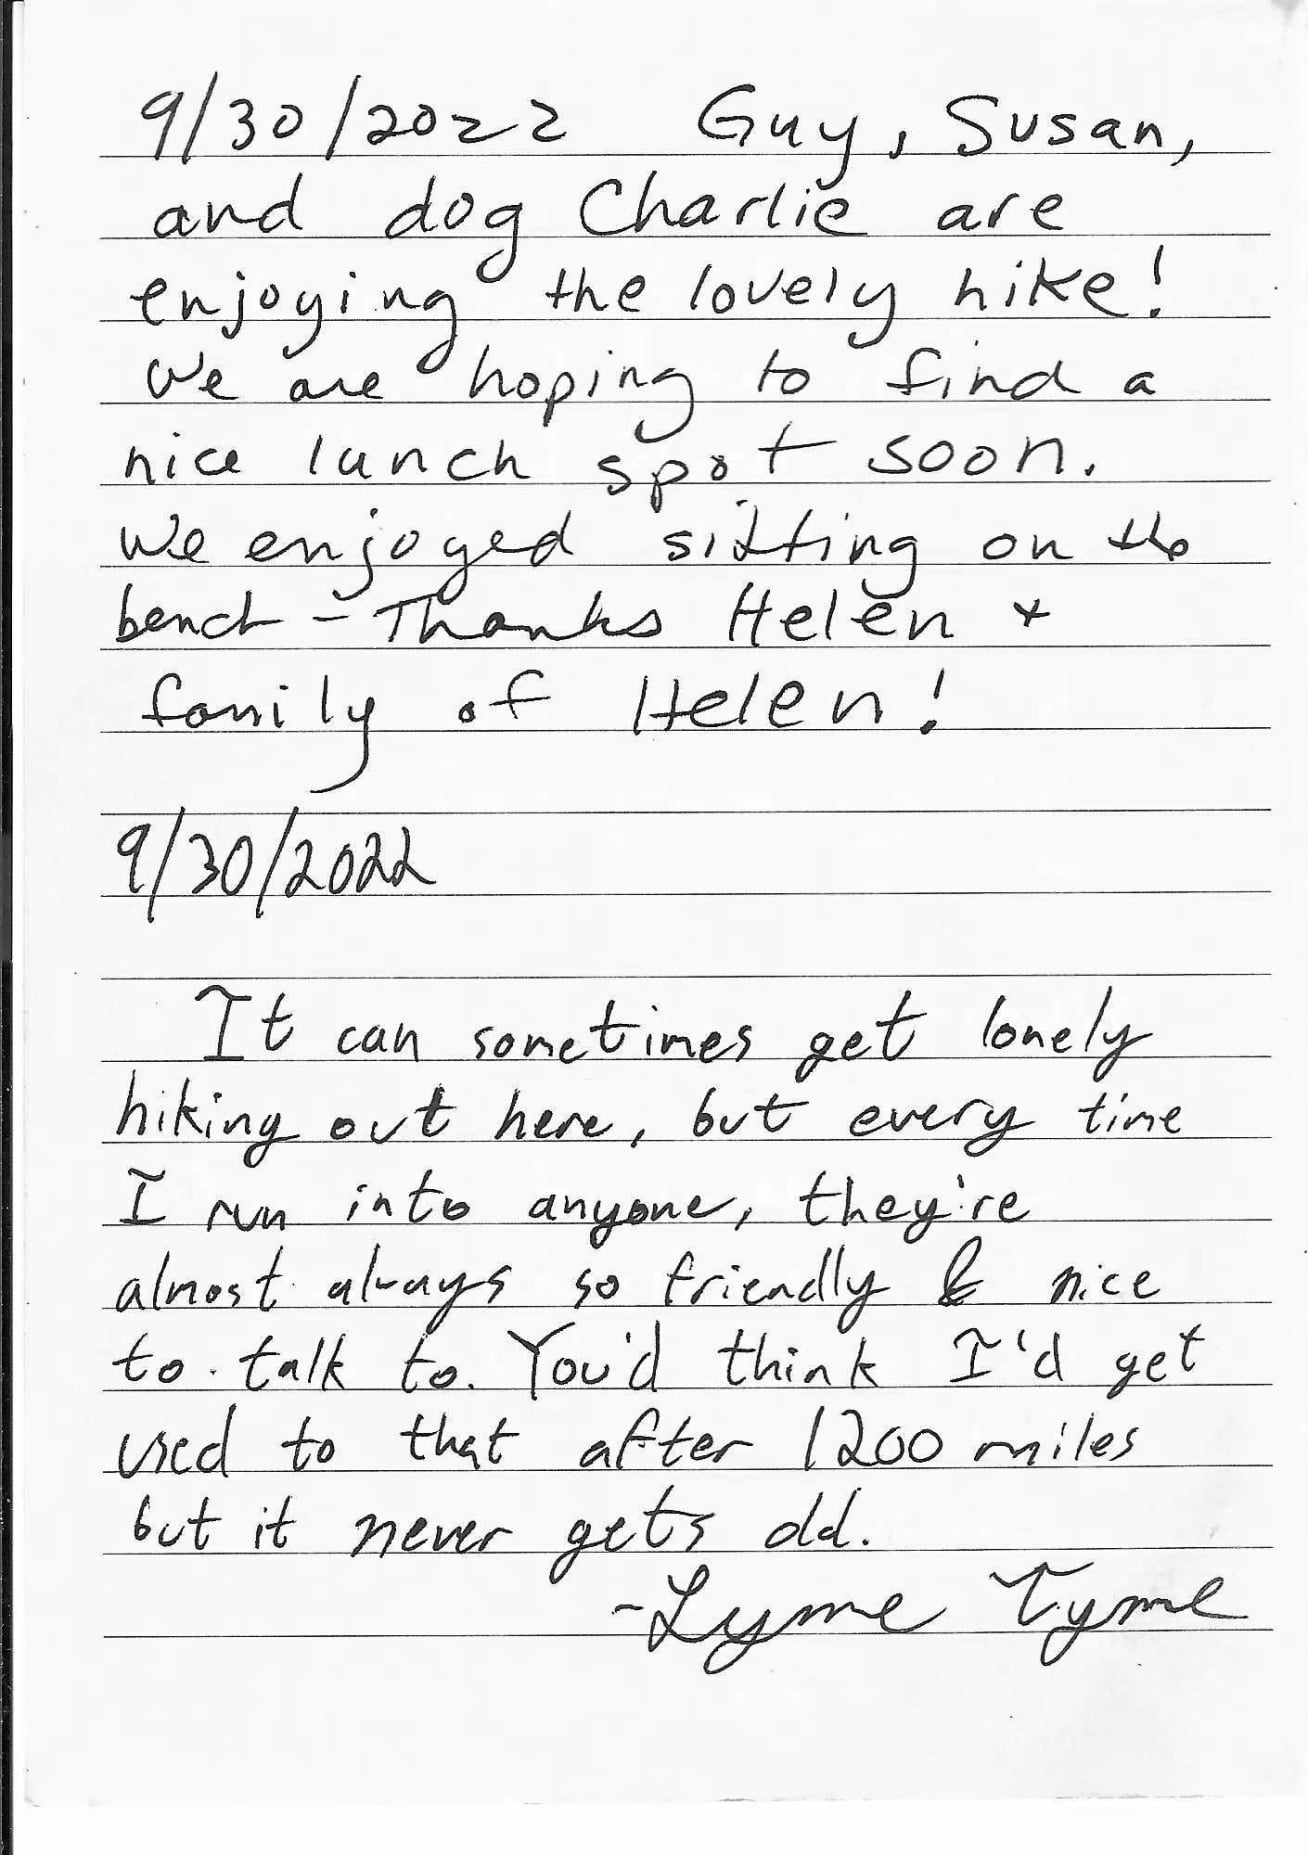 9/30/2022 Guy, Susan,
and dog Charlie are
enjoying the lovely hike!
We are hoping to find a
nice lunch spot soon.
We enjoyed sitting on the
bench - Thanks Helen +
family of Helen!
9/30/2022
It can sometimes get lonely
hiking out here, but every time
I run into anyone, they're
almost always so friendly & nice
to talk to. You'd think I'd get
used to that after 1200 miles
but it never gets old.
-Lyme Tyme